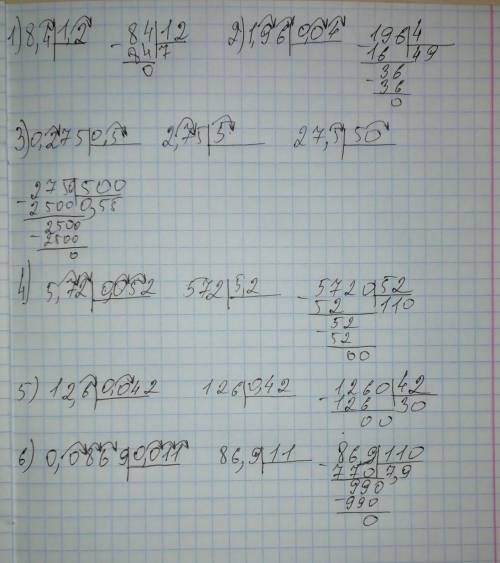 1) 8,4 | 1,2   - 84 | 12   2) 1,96 | 0,04   - 196 | 4
84 | 7   16 | 49
0   - 36
36
0
3) 0,275 | 0,5   2,75 | 5   27,5 | 50
- 275 | 500
2500 | 0,55
2500
- 2500
0
4) 5,72 | 0,052   572 | 5,2   - 5720 | 52
52 | 110
- 52
52
00
5) 12,6 | 0,042   126 | 0,42   - 1260 | 42
126 | 30
00
6) 0,0869 | 0,011   86,9 | 11   - 86,9 | 110
770 | 7,9
990
- 990
0